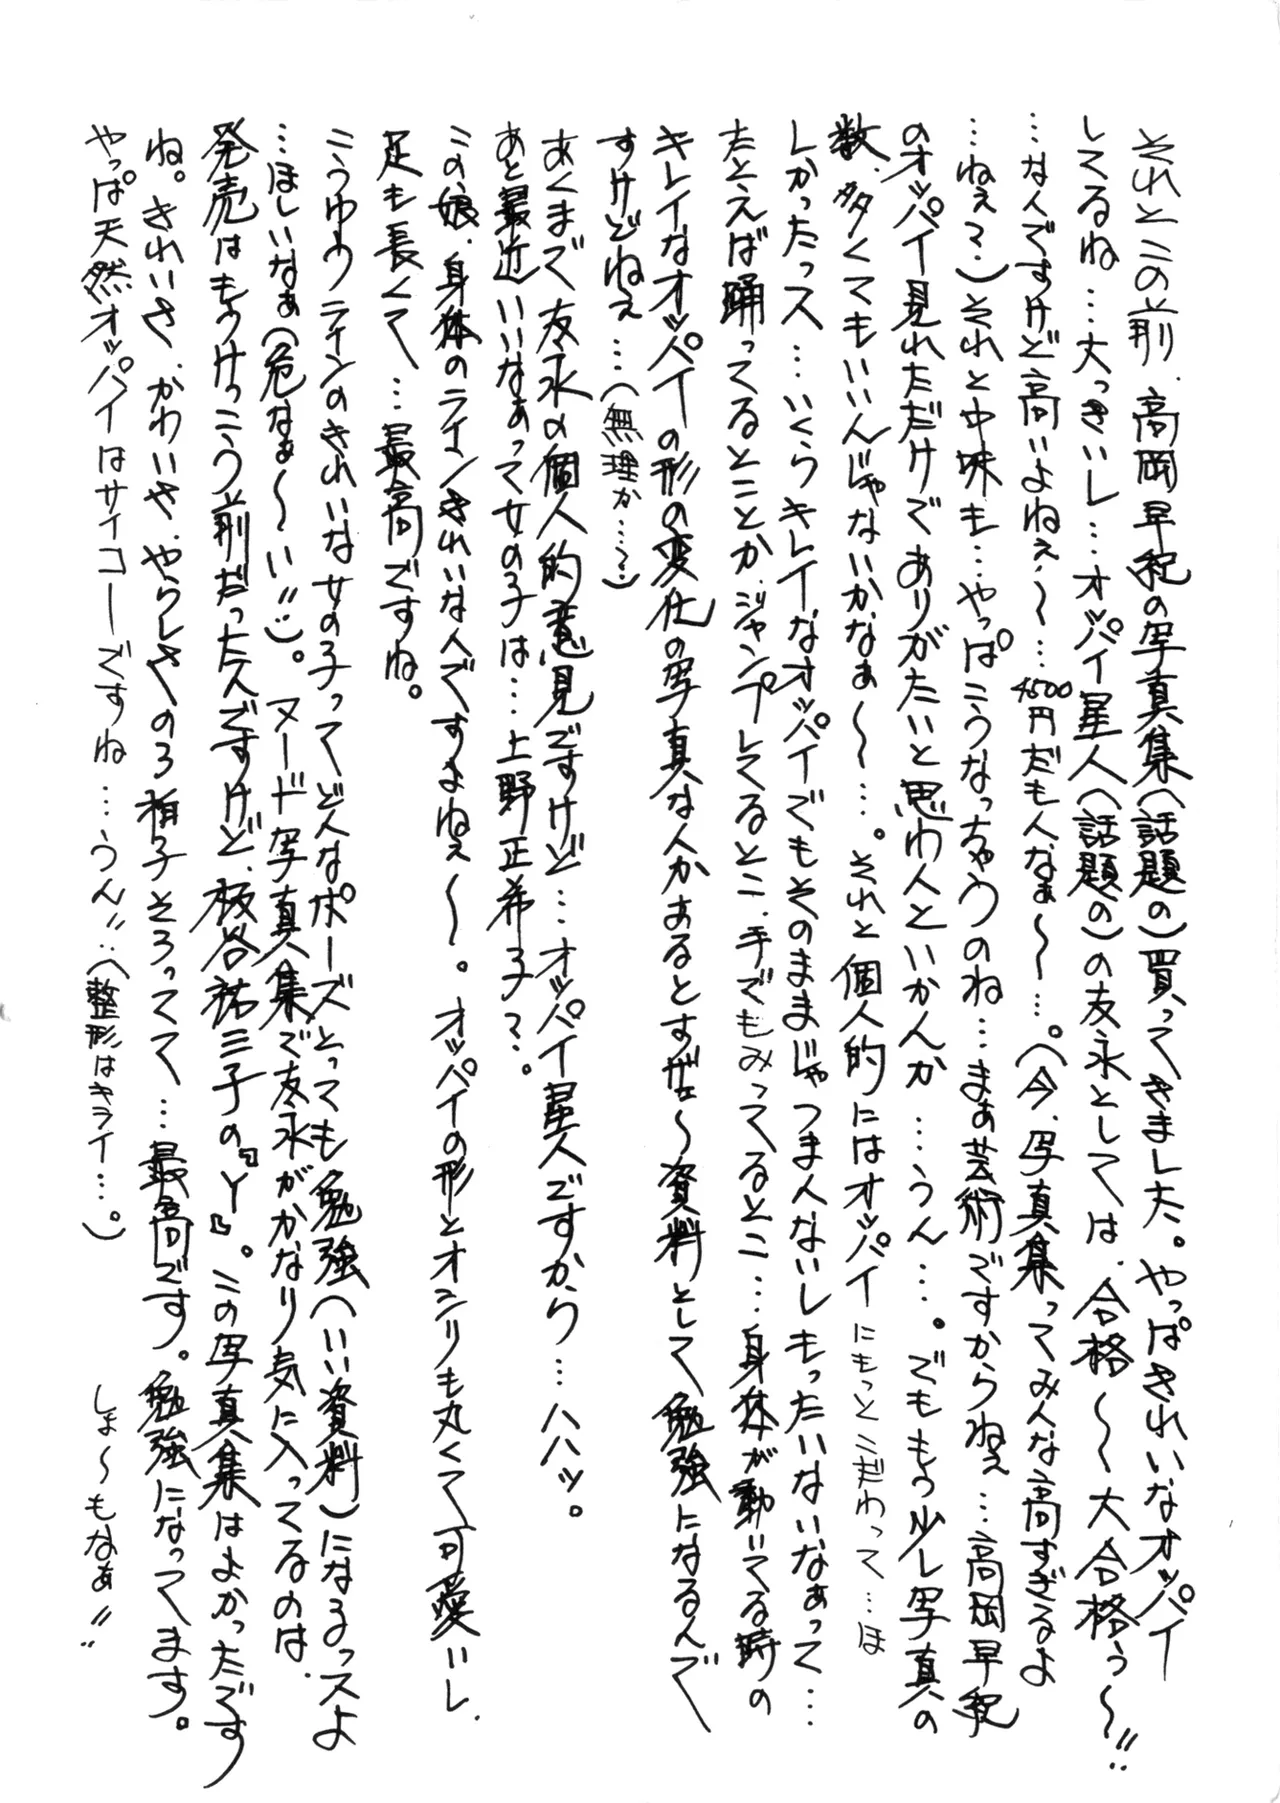 それとこの前、高岡早紀の写真集(話題の)買ってきました。やっぱきれいなオッパイ
してるね…大っきいし…オッパイ星人(話題の)の友永としては、合格〜〜大合格う〜!!
…なんですけど高いよねぇ〜〜…4500円だもんなぁ〜〜…。(今、写真集ってみんな高すぎるよ
…ねぇ?)それと中味も…やっぱこうなっちゃうのね…まぁ芸術ですからねぇ…高岡早紀
のオッパイ見れただけでありがたいと思わんといかんか…うん…。でももう少し写真の
数、多くてもいいんじゃないかなぁ〜〜…。それと個人的にはオッパイにもっとこだわって…ほ
しかったっス…いくらキレイなオッパイでもそのままじゃつまんないしもったいないなぁって…
たとえば踊ってるとことか、ジャンプしてるとこ、手でもみってるとこ…身体が動いてる時の
キレイなオッパイの形の変化の写真なんかあるとすげェ〜資料として勉強になるんで
すけどねぇ…(無理か…?)
あくまで友永の個人的意見ですけど…オッパイ星人ですから…ハハッ。
あと最近いいなぁって女の子は…上野正希子?。
この娘、身体のラインきれいな人ですよねぇ〜。オッパイの形とオシリも丸くて可愛いし、
足も長くて…最高ですね。
こうゆうラインのきれいな女の子ってどんなポーズとっても勉強(いい資料)になるっスよ
…ほしいなぁ(危なぁ〜〜い!!)。ヌード写真集で友永がかなり気に入ってるのは、
発売はもうけっこう前だったんですけど、板谷祐三子の『Y』。この写真集はよかったです
ね。きれいさ、かわいさ、やらしさの3拍子そろってて…最高です。勉強になってます。
やっぱ天然オッパイはサイコーですね…うん!!…(整形はキライ…。) しょ〜もなぁ!!